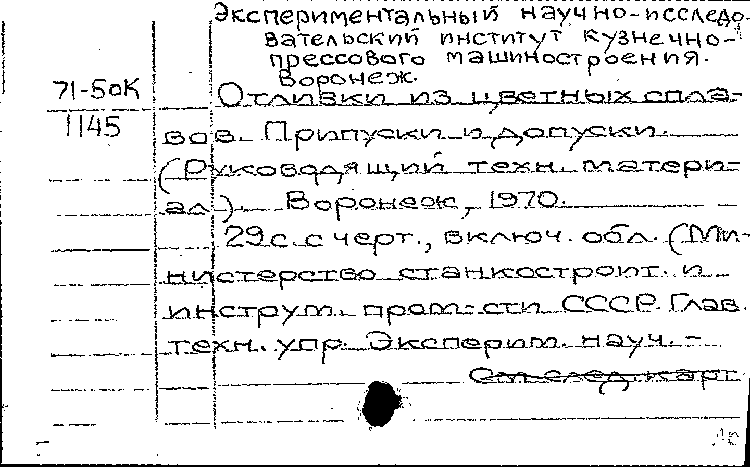 Экспериментальный научно-исследо-
вательский институт кузнечно-
прессового машиностроения.
Воронеж.
71-50к
1145
Отливки из цветных спла-
вов. Припуски и допуски.
(Руководящий техн. матери-
ал). Воронеж, 1970.
29 с. с черт., включ. обл. (Ми-
нистерство станкостроит. и
инструм. пром-сти СССР. Глав.
техн. упр. Эксперим. науч.-
См. след. карт